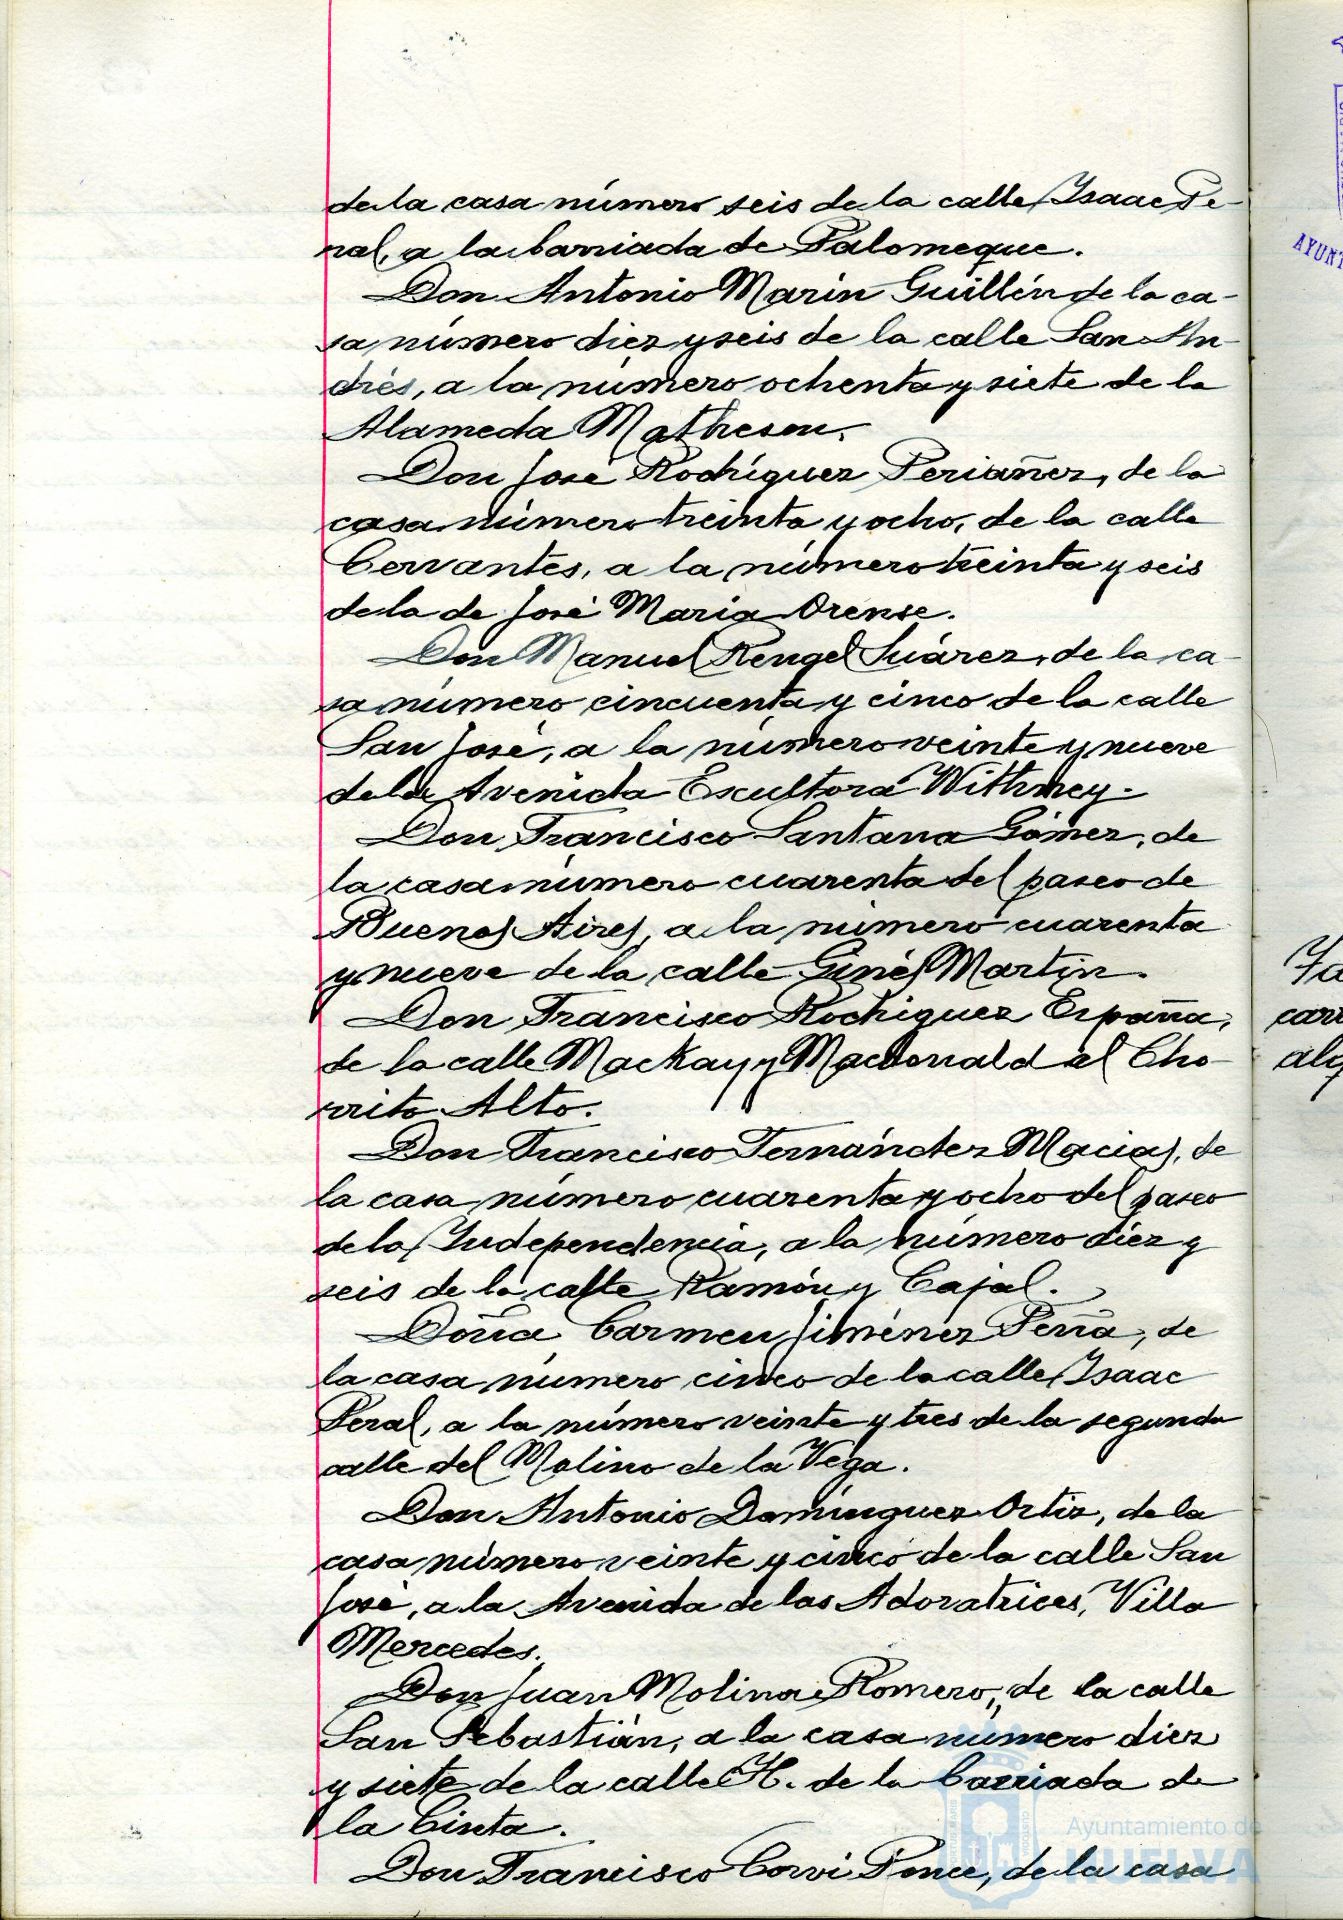 de la casa número seis de la calle Isaac Pe-
ral, a la barriada de Palomeque.
Don Antonio Marín Guillén de la ca-
sa número diez y seis de la calle San An-
drés, a la número ochenta y siete de la
Alameda Matheson.
Don José Rodríguez Periañez, de la
casa número treinta y ocho, de la calle
Cervantes, a la número treinta y seis
de la de José María Orense.
Don Manuel Rengel Suárez, de la ca-
sa número cincuenta y cinco de la calle
San José, a la número veinte y nueve
de la Avenida Escultora Withney.
Don Francisco Santana Gómez, de
la casa número cuarenta del paseo de
Buenos Aires, a la número cuarenta
y nueve de la calle Ginés Martín.
Don Francisco Rodríguez España,
de la calle Mackay y Macdonald al Cho-
rrito Alto.
Don Francisco Fernández Macías, de
la casa número cuarenta y ocho del paseo
de la Independencia, a la número diez y
seis de la calle Ramón y Cajal.
Doña Carmen Jiménez Peña, de
la casa número cinco de la calle Isaac
Peral, a la número veinte y tres de la segunda
calle del Molino de la Vega.
Don Antonio Domínguez Ortiz, de la
casa número veinte y cinco de la calle San
José, a la Avenida de las Adoratrices, Villa
Mercedes.
Don Juan Molina Romero, de la calle
San Sebastián, a la casa número diez
y siete de la calle H. de la barriada de
la Cinta.
Don Francisco Corvi Ponce, de la casa
Ayuntamiento de
HUELVA
AYUNT